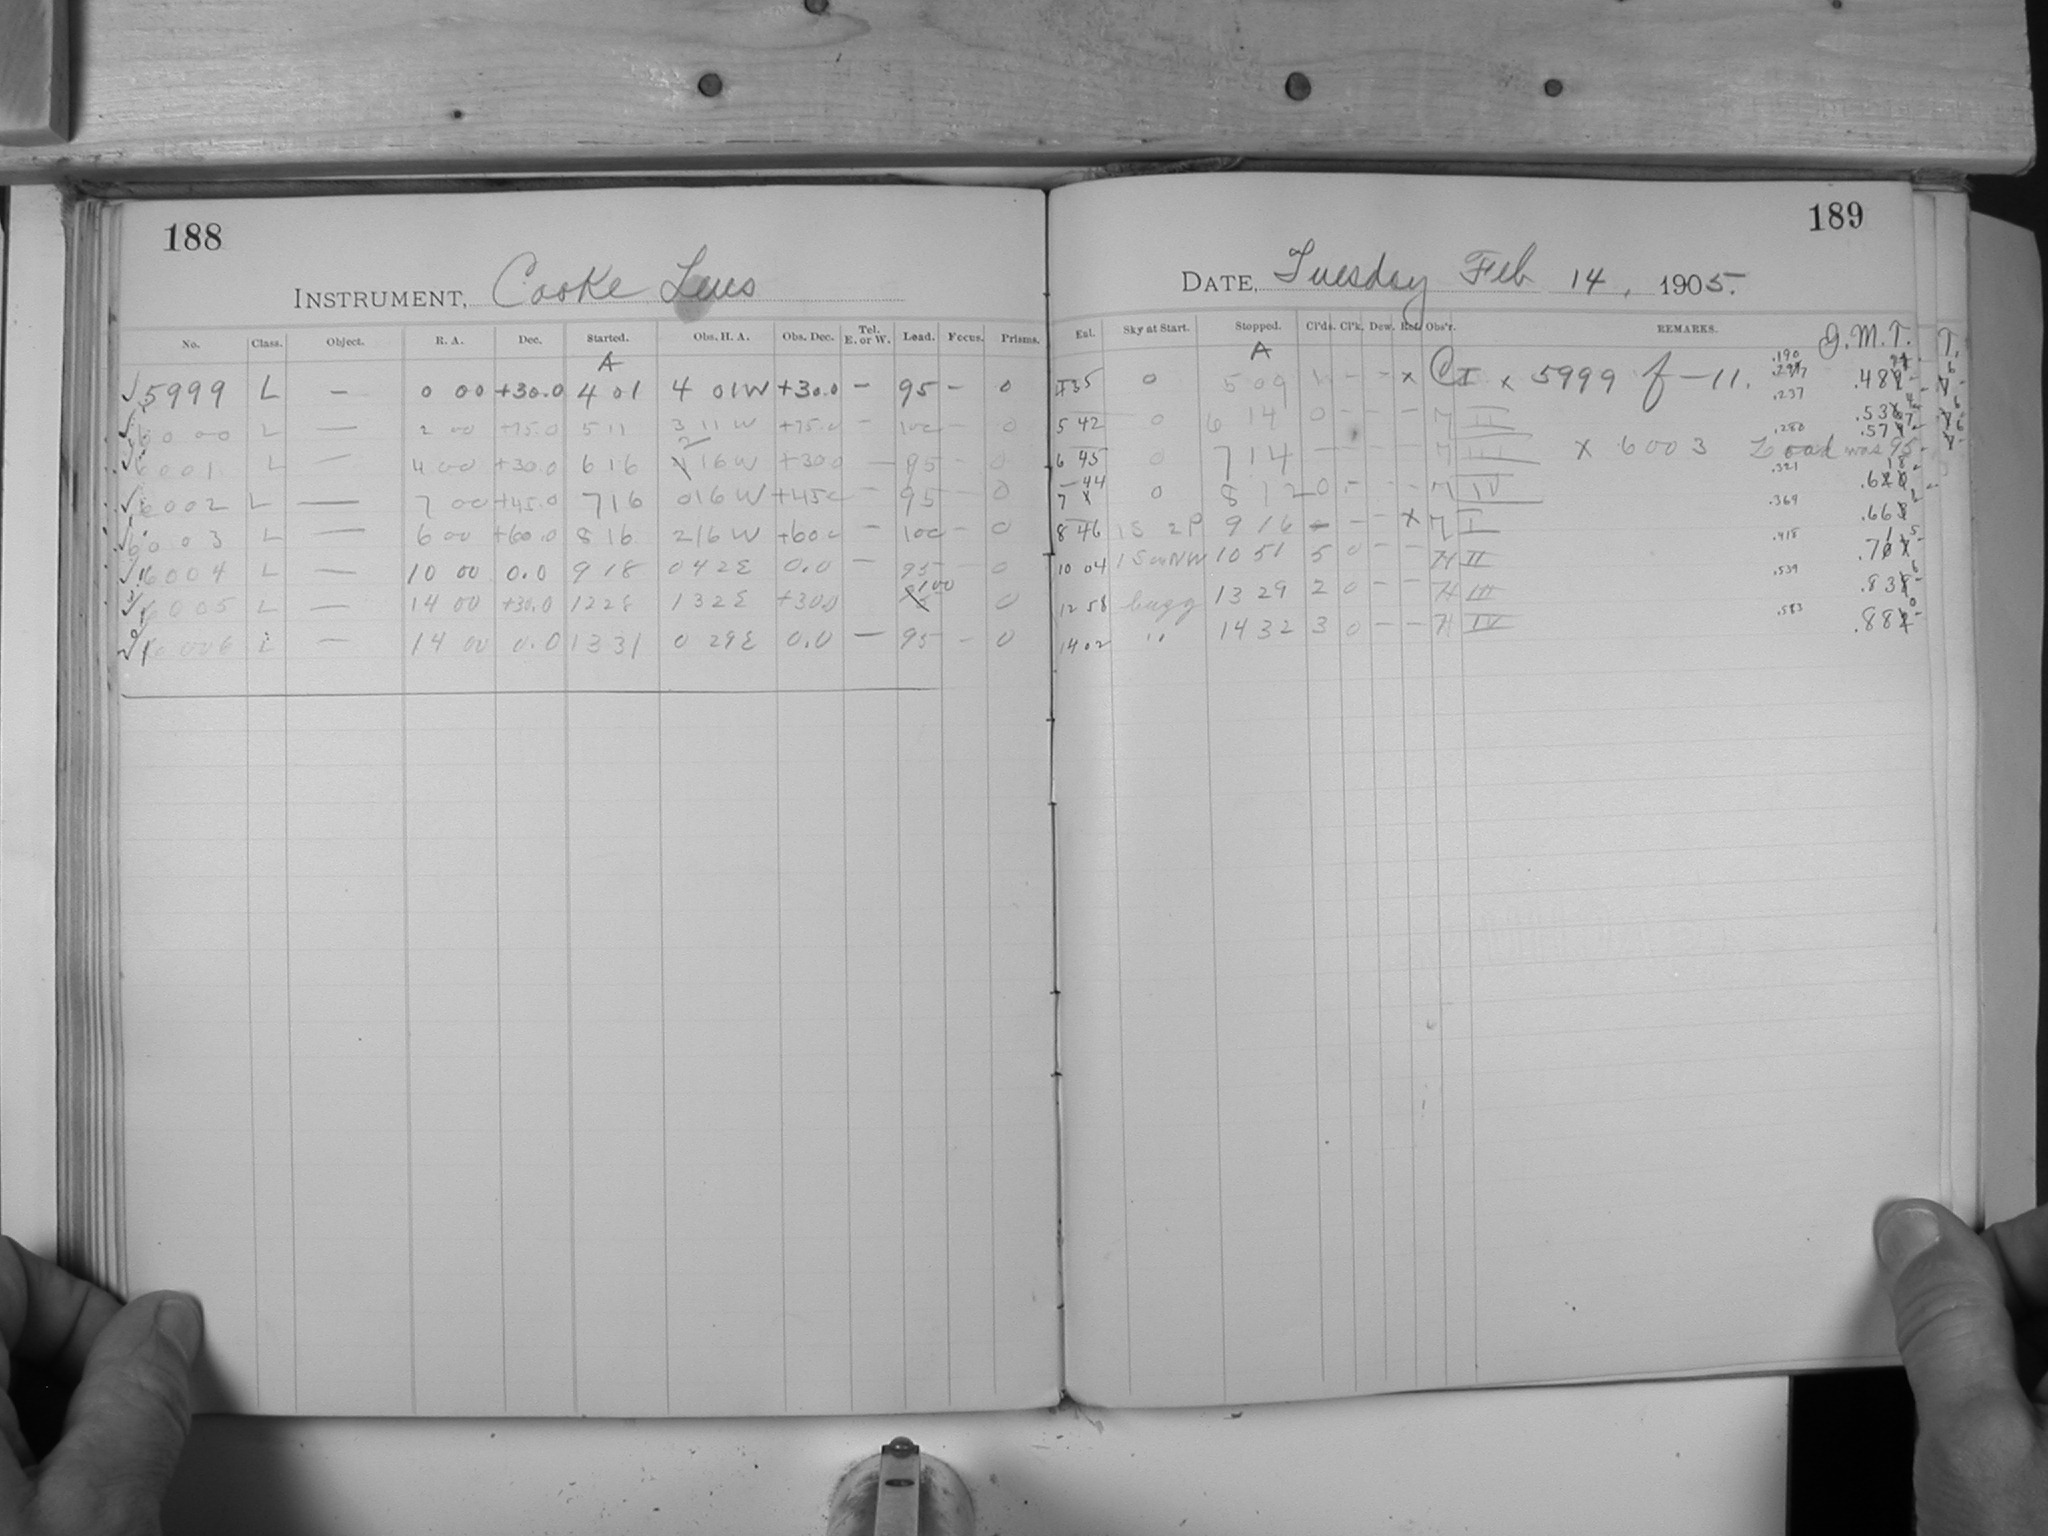 188
INSTRUMENT, Cooke Lens
No. Class. Object. R. A. Dec. Started. Obs. H. A. Obs. Dec. Tel. E. or W. Load. Focus. Prisms.
A
√ 5999 L — 0 00 +30.0 4 01 4 01W +30.0 — 95 — 0
6000 L — 2 00 +75.0 5 11 3 11 W +75.0 — 100 — 0
6001 L — 4 00 +30.0 6 16 2 16W +30.0 — 95 — 0
6002 L — 7 00 +45.0 7 16 0 16 W +45.0 — 95 — 0
6003 L — 6 00 +60.0 8 16 2 16 W +60.0 — 100 — 0
6004 L — 10 00 0.0 9 18 0 42E 0.0 — 95 — 0
6005 L — 14 00 +30.0 12 28 1 32E +30.0 100 0
6006 L — 14 00 0.0 13 31 0 29E 0.0 — 95 — 0
189
DATE, Tuesday Feb 14, 1905.
Eal. Sky at Start. Stopped. Cl'ds. Cl'k. Dew. Rot. Obs'r. REMARKS. G.M.T. T.
A
4 35 0 5 09 1 - - x C I x 5999 f-11.
5 42 0 6 14 0 - - - M II
6 45 0 7 14 - - - M III x 6003 Load was 95
7 44 0 8 12 0 - - M IV
8 46 1S 2P 9 16 - - - x M I
10 04 1S in NW 10 51 5 0 - - H II
12 58 hazy 13 29 2 0 - - H III
14 02 " 14 32 3 0 - - H IV
.190
.237
.280
.321
.369
.415
.539
.583